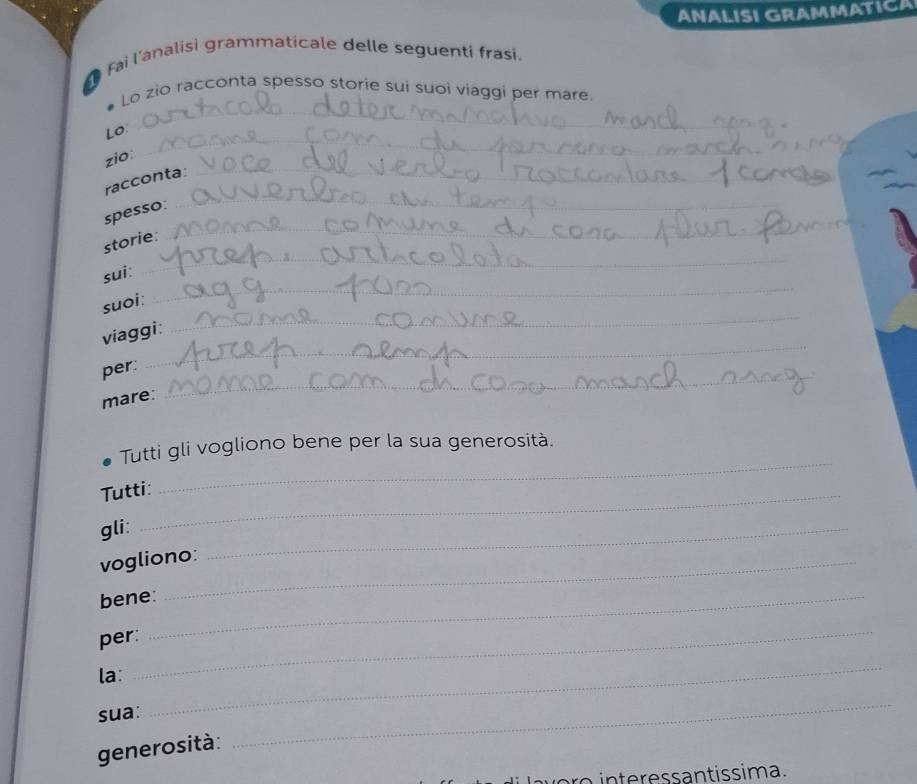 ANALISI GRAMMATICA
1 Fai l'analisi grammaticale delle seguenti frasi.
• Lo zio racconta spesso storie sui suoi viaggi per mare.
Lo: articolo determinativo masch sing.
zio: nome com. di persona masch sing
racconta: voce del verbo raccontare 1 coniug
spesso: avverbio di tempo
storie: nome comune di cosa plur. femm
sui: prep. articolata
suoi: agg. poss
viaggi: nome comune
per: prep. semp
mare: nome com di cosa masch sing
• Tutti gli vogliono bene per la sua generosità.
Tutti:
gli:
vogliono:
bene:
per:
la:
sua:
generosità:
di lavoro interessantissima.